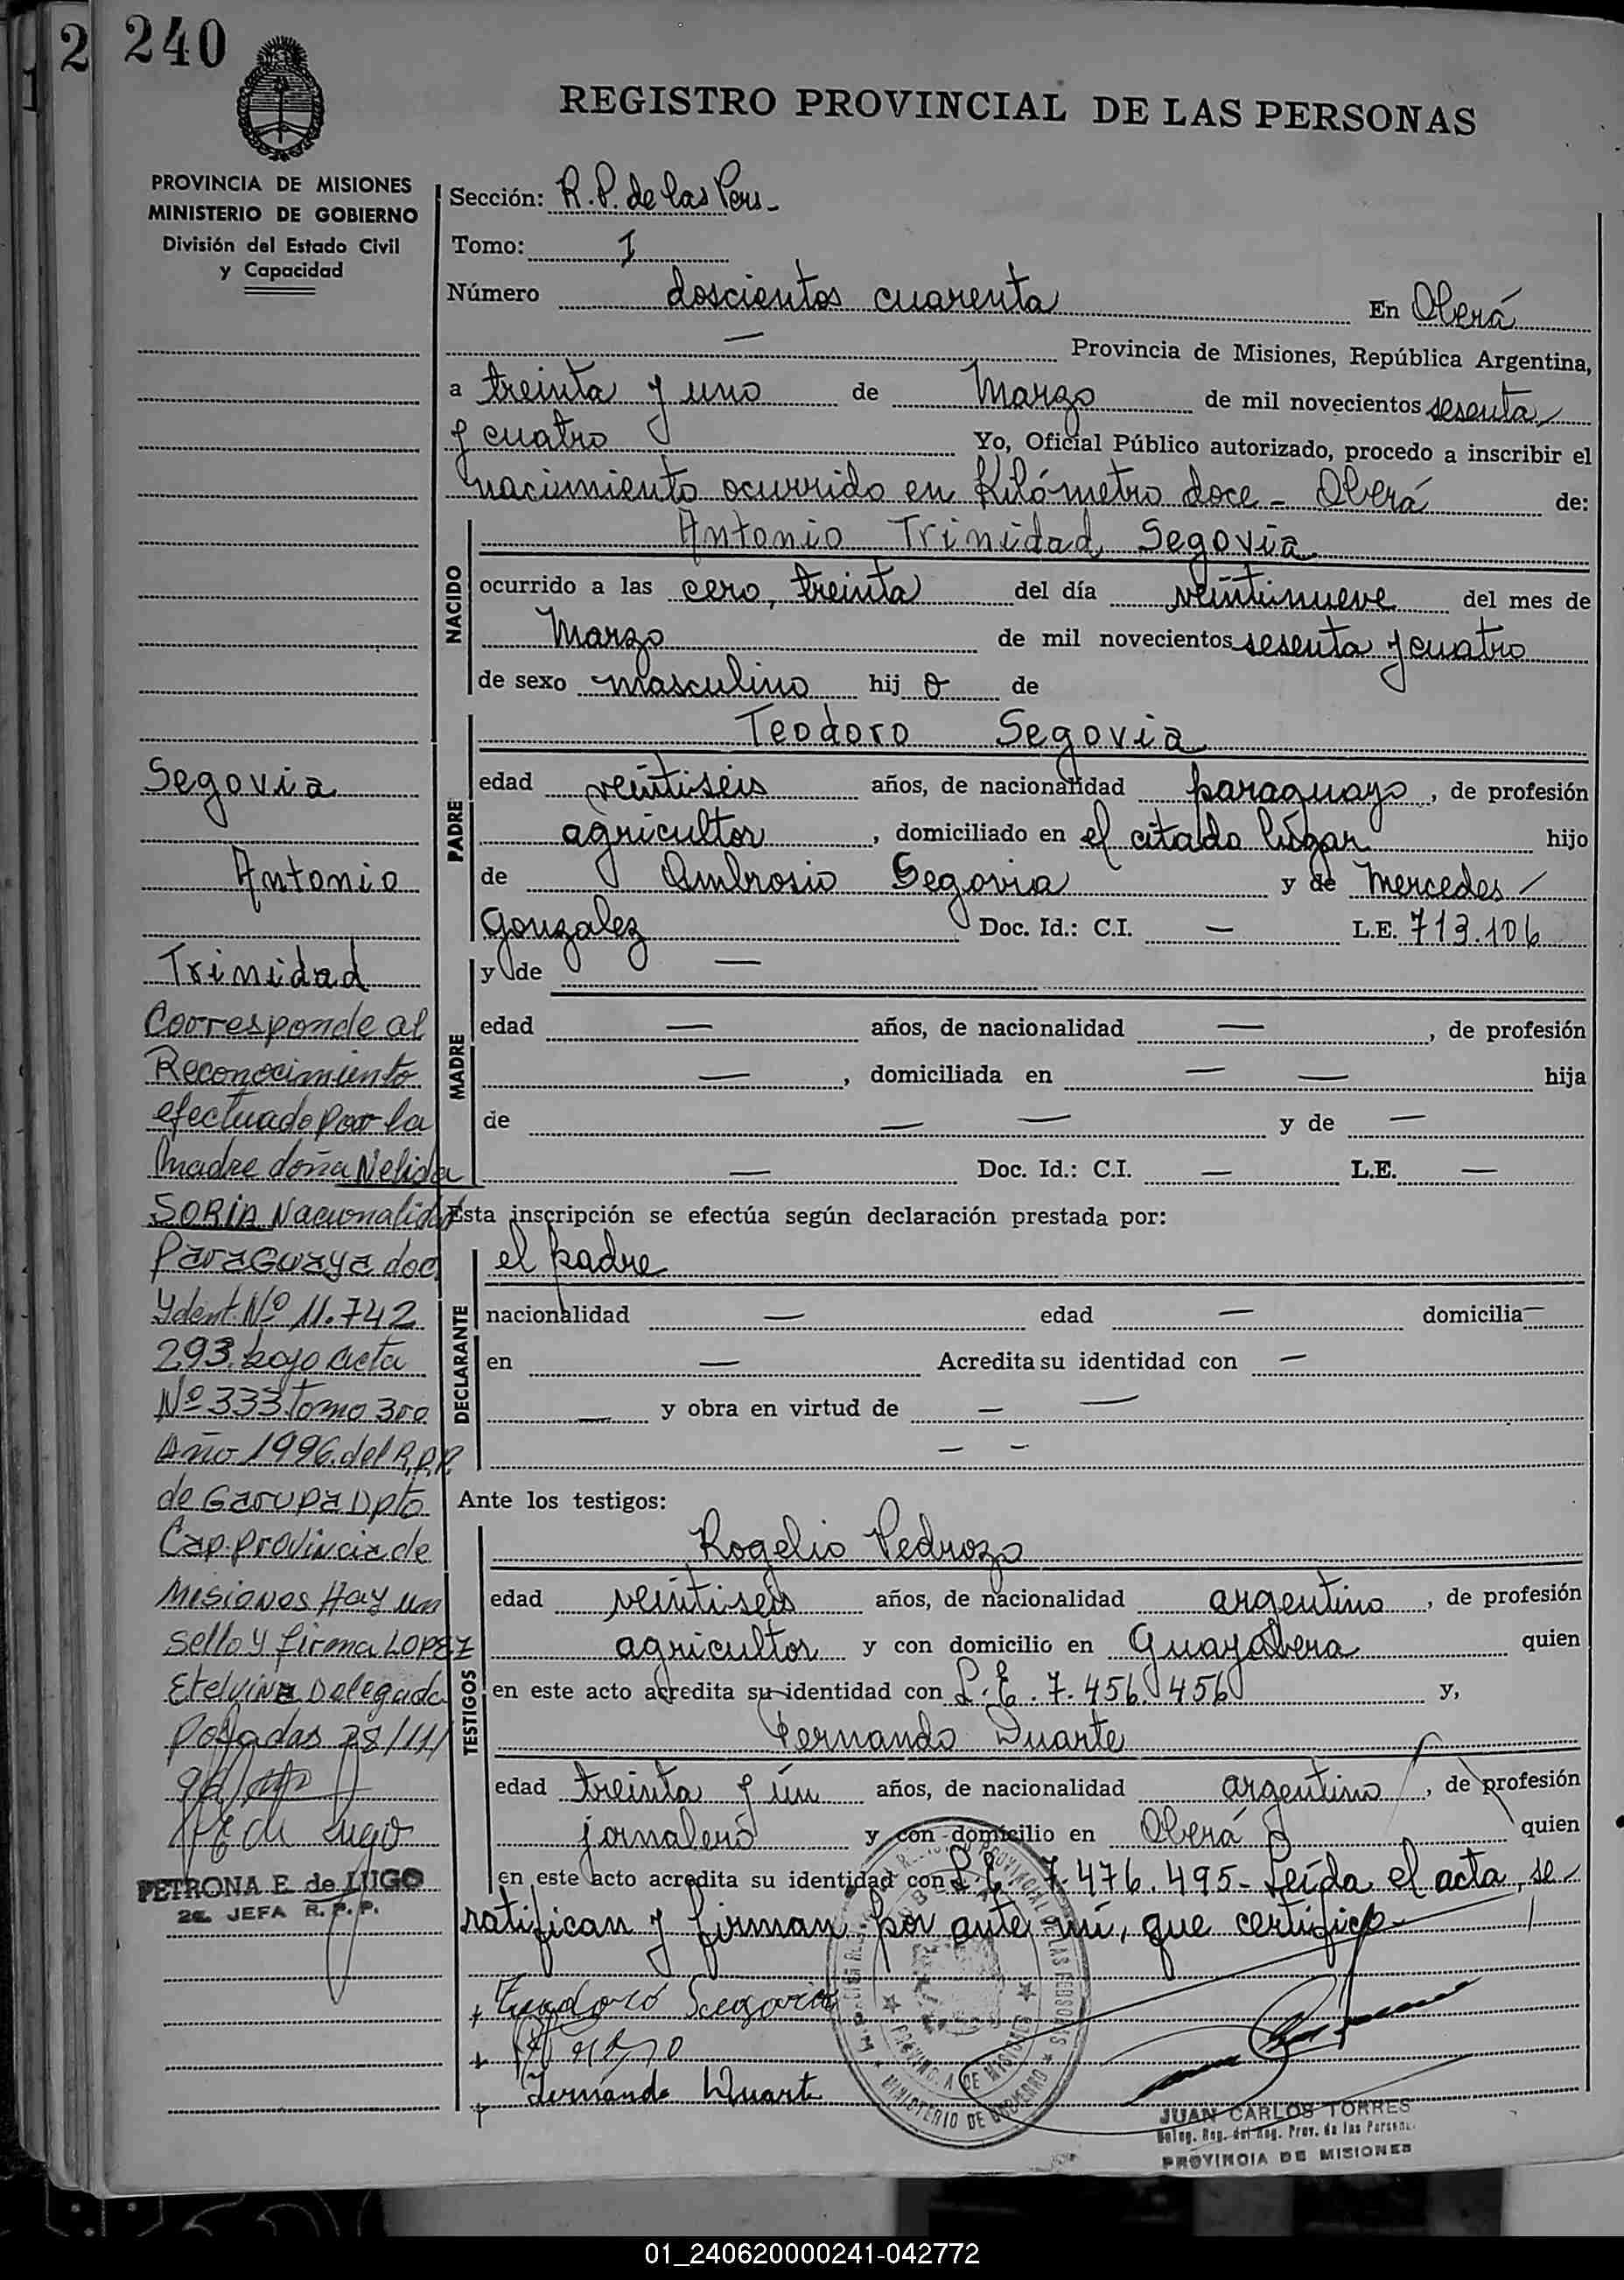 2 240
REGISTRO PROVINCIAL DE LAS PERSONAS
PROVINCIA DE MISIONES
MINISTERIO DE GOBIERNO
División del Estado Civil
y Capacidad
Sección: R.P. de las Pers-
Tomo: I
Número doscientos cuarenta En Oberá
— Provincia de Misiones, República Argentina,
a treinta y uno de Marzo de mil novecientos sesenta
y cuatro Yo, Oficial Público autorizado, procedo a inscribir el
nacimiento ocurrido en Kilómetro doce - Oberá de:
NACIDO
Antonio Trinidad Segovia
ocurrido a las cero, treinta del día veintinueve del mes de
Marzo de mil novecientos sesenta y cuatro
de sexo masculino hij o de
PADRE
Teodoro Segovia
edad veintiseis años, de nacionalidad paraguayo, de profesión
agricultor, domiciliado en el citado lugar hijo
de Ambrosio Segovia y de Mercedes
Gonzalez Doc. Id.: C.I. — L.E. 713.106
MADRE
y de —
edad — años, de nacionalidad —, de profesión
—, domiciliada en — — hija
de — — y de —
— Doc. Id.: C.I. — L.E. —
Esta inscripción se efectúa según declaración prestada por:
DECLARANTE
el padre
nacionalidad — edad — domicilia—
en — Acredita su identidad con —
— y obra en virtud de — —
— —
Ante los testigos:
TESTIGOS
Rogelio Pedrozo
edad veintiseis años, de nacionalidad argentino, de profesión
agricultor y con domicilio en Guayabera quien
en este acto acredita su identidad con L.E. 7.456.456 y,
Fernando Duarte
edad treinta y un años, de nacionalidad argentino, de profesión
jornalero y con domicilio en Oberá quien
en este acto acredita su identidad con L.E. 7.476.495- Leída el acta, se
ratifican y firman por ante mí, que certifico-
Teodoro Segovia
Fernando Duarte
MINISTERIO DE GOBIERNO
PROVINCIA DE MISIONES
JUAN CARLOS TORRES
Deleg. Reg. del Reg. Prov. de las Personas
PROVINCIA DE MISIONES
Segovia
Antonio
Trinidad
Corresponde al
Reconocimiento
efectuado por la
madre doña Nelida
SORIA Nacionalidad
Paraguaya doc
Ydent. Nº 11.742
293. bajo acta
Nº 333 Tomo 3ro
Año 1996. del R.P.P.
de Garupa Dpto
Cap. provincia de
Misiones Hay un
sello y firma LOPEZ
Etelvina Delegada
Posadas 28/11/
96
E de Lugo
PETRONA E. de LUGO
2a. JEFA R.P.P.
01_240620000241-042772